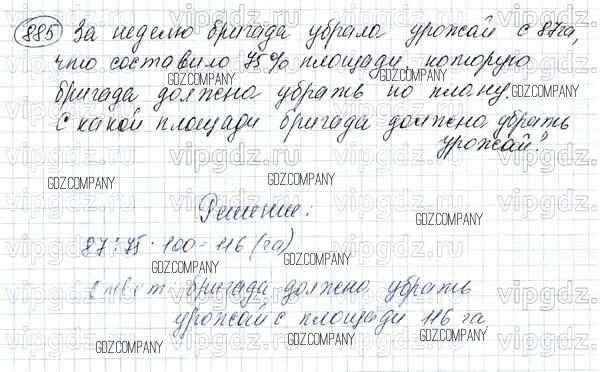 885 За неделю бригада убрала урожай с 87 га,
что составило 75% площади, которую
бригада должна убрать по плану.
С какой площади бригада должна убрать
урожай?
Решение:
87 : 75 · 100 = 116 (га)
Ответ: бригада должна убрать
урожай с площади 116 га
GDZ.COMPANY
vipgdz.ru